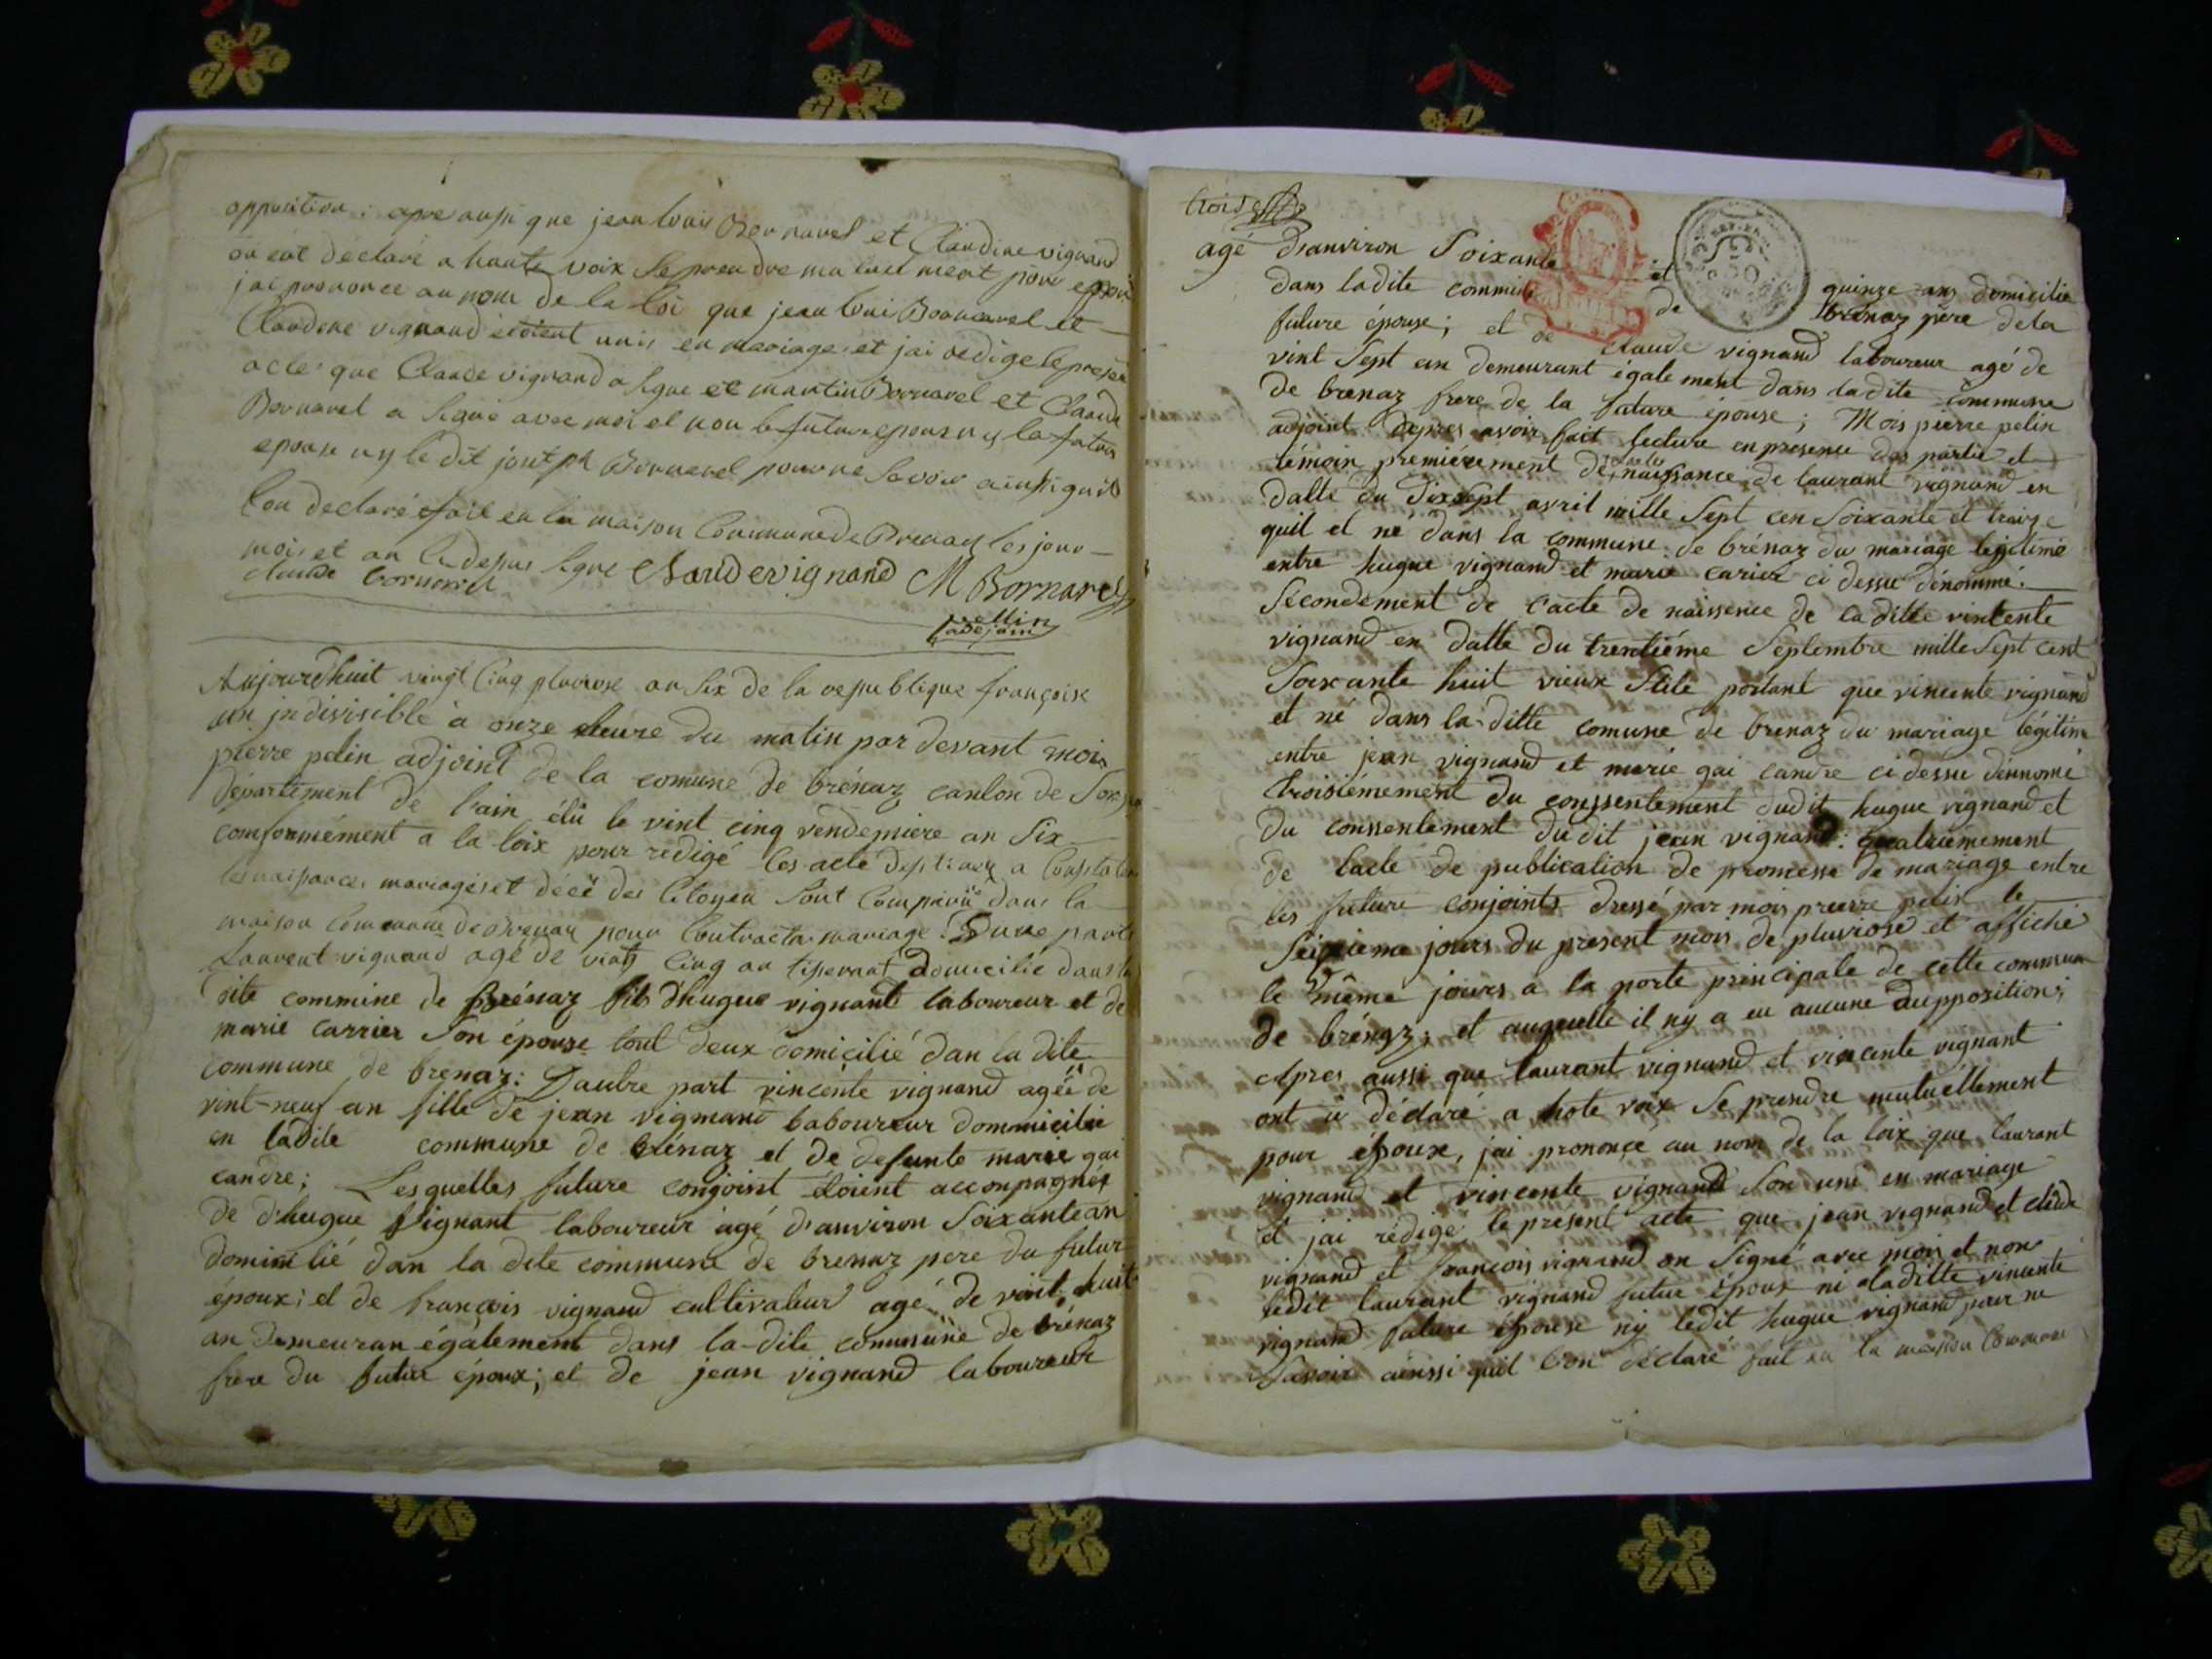 opposition: apre aussi que jean louis Bornarel et Claudine vignand
on eut déclaré a haute voix se prendre mutuel ment pour epoux
jai prononcé au nom de la loi que jean loui Bornarel et
Claudine vignand étoient unis en mariage et jai redigé le present
acte que Claude vignand a signe et martin Bornarel et Claude
Bornarel a signé avec moi et non le futur epoux ny la future
epouse ny le dit joutph Bornarel pour ne savoir ainsi quil
lon declaré fait en la maison Commune de Brenaz les jour
mois et an ci depus signe Claude vignand M Bornarel
claude bornarel
pellin
adejoin
Aujourdhuit vingt Cinq pluviose an six de la republique françoise
un indivisible à onze heure du matin par devant mois
pierre pelin adjoint de la comune de brénaz canton de
département de l'ain élü le vint cinq vendemiere an Six
comformément a la loix pour redigé les acte destinez a Constater
les naissances mariages et décé des Citoyen Sont Comparü dans la
maison Commune de Brenaz pour Contracter mariage Dune part
Laurent vignand agé de vint Cinq an tisserant Domicilié dans la
dite commune de Brénaz fils d'hugue vignant laboureur et de
marie carrier son épouse tout deux domicilié dan la dite
commune de brenaz: Dautre part vincente vignand agée de
vint-neuf an fille de jean vignand baboureur dommicilié
en ladite commune de brénaz et de defunte marie gai
candre; Lesquelles future conjoint étoient acconpagnés
de d'hugue Vignant laboureur agé d'anviron Soixante an
domicilié dan la dite commune de brenaz pere du futur
époux; et de françois vignand cultivateur agé de vint huit
an demeuran également dans la-dite comunüne de brénaz
frere du futur époux; et de jean vignand laboureur
trois
agé d'anviron Soixante et quinze ans domicilié
dans ladite commune de brénaz père de la
future épouse; et de Claude vignand laboureur agé de
vint Sept an demeurant egalement dans ladite commune
de brenaz frere de la future épouse; Mois pierre pelin
adjoint apres avoir fait lecture en presence des partie et
témoin premiérement de lacte naissance de laurant vignand en
datte du dixsept avril mille Sept cen Soixante et traize
quil et né dans la commune de brénaz du mariage legitime
entre hugue vignand et marie carier ci dessu dénommé.
Sécondement de l'acte de naissence de ladille vintente
vignand en datte du trentiéme Septembre mille Sept cent
Soixante huit vieux Stile portant que vincente vignand
et né dans la ditte comune de brenaz du mariage légitime
entre jean vignand et marie gai candre ci dessu dénnomé
troisiémement du conssentement dudit hugue vignand et
du conssentement du dit jean vignand: quatriemement
de lacte de publication de promesse de mariage entre
les future conjoints dressé par mois preirre pelin le
Seizieme jours du present mois de pluviose et affiché
le même jours a la porte principale de cette commune
de brénaz; et auquelle il ny a eu aucune aupposition;
Apres aussi que laurant vignand et vincente vignant
ont ü déclaré a hote voix se prendre mutuéllement
pour époux, jai prononcé au nom de la loix que laurant
vignand et vincente vignand Son uni en mariage
et jai rédigé le présent acte que jean vignand et claude
vignand et francois vignand on Signé avec mois et non
ledit laurant vignand futur époux ni laditte vincente
vignand future épouse ny ledit hugue vignand pour ne
savoir ainssi quil lon déclaré fait en la maison Commune